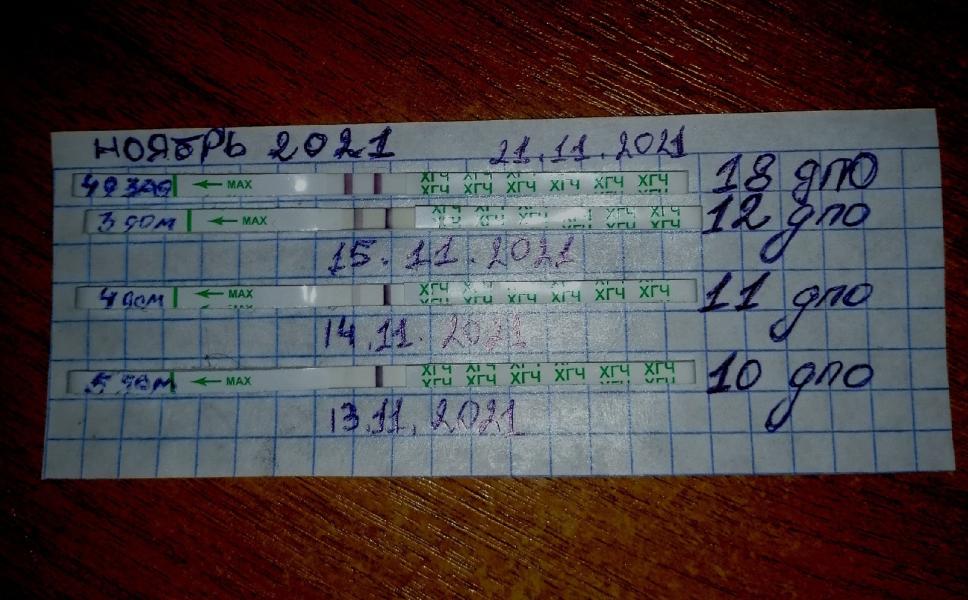 НОЯБРЬ 2021 21.11.2021
← MAX ХГЧ ХГЧ ХГЧ ХГЧ ХГЧ ХГЧ 18 дпо
← MAX ХГЧ ХГЧ ХГЧ ХГЧ ХГЧ ХГЧ 12 дпо
15.11.2021
← MAX ХГЧ ХГЧ ХГЧ ХГЧ ХГЧ ХГЧ 11 дпо
14.11.2021
← MAX ХГЧ ХГЧ ХГЧ ХГЧ ХГЧ ХГЧ 10 дпо
13.11.2021